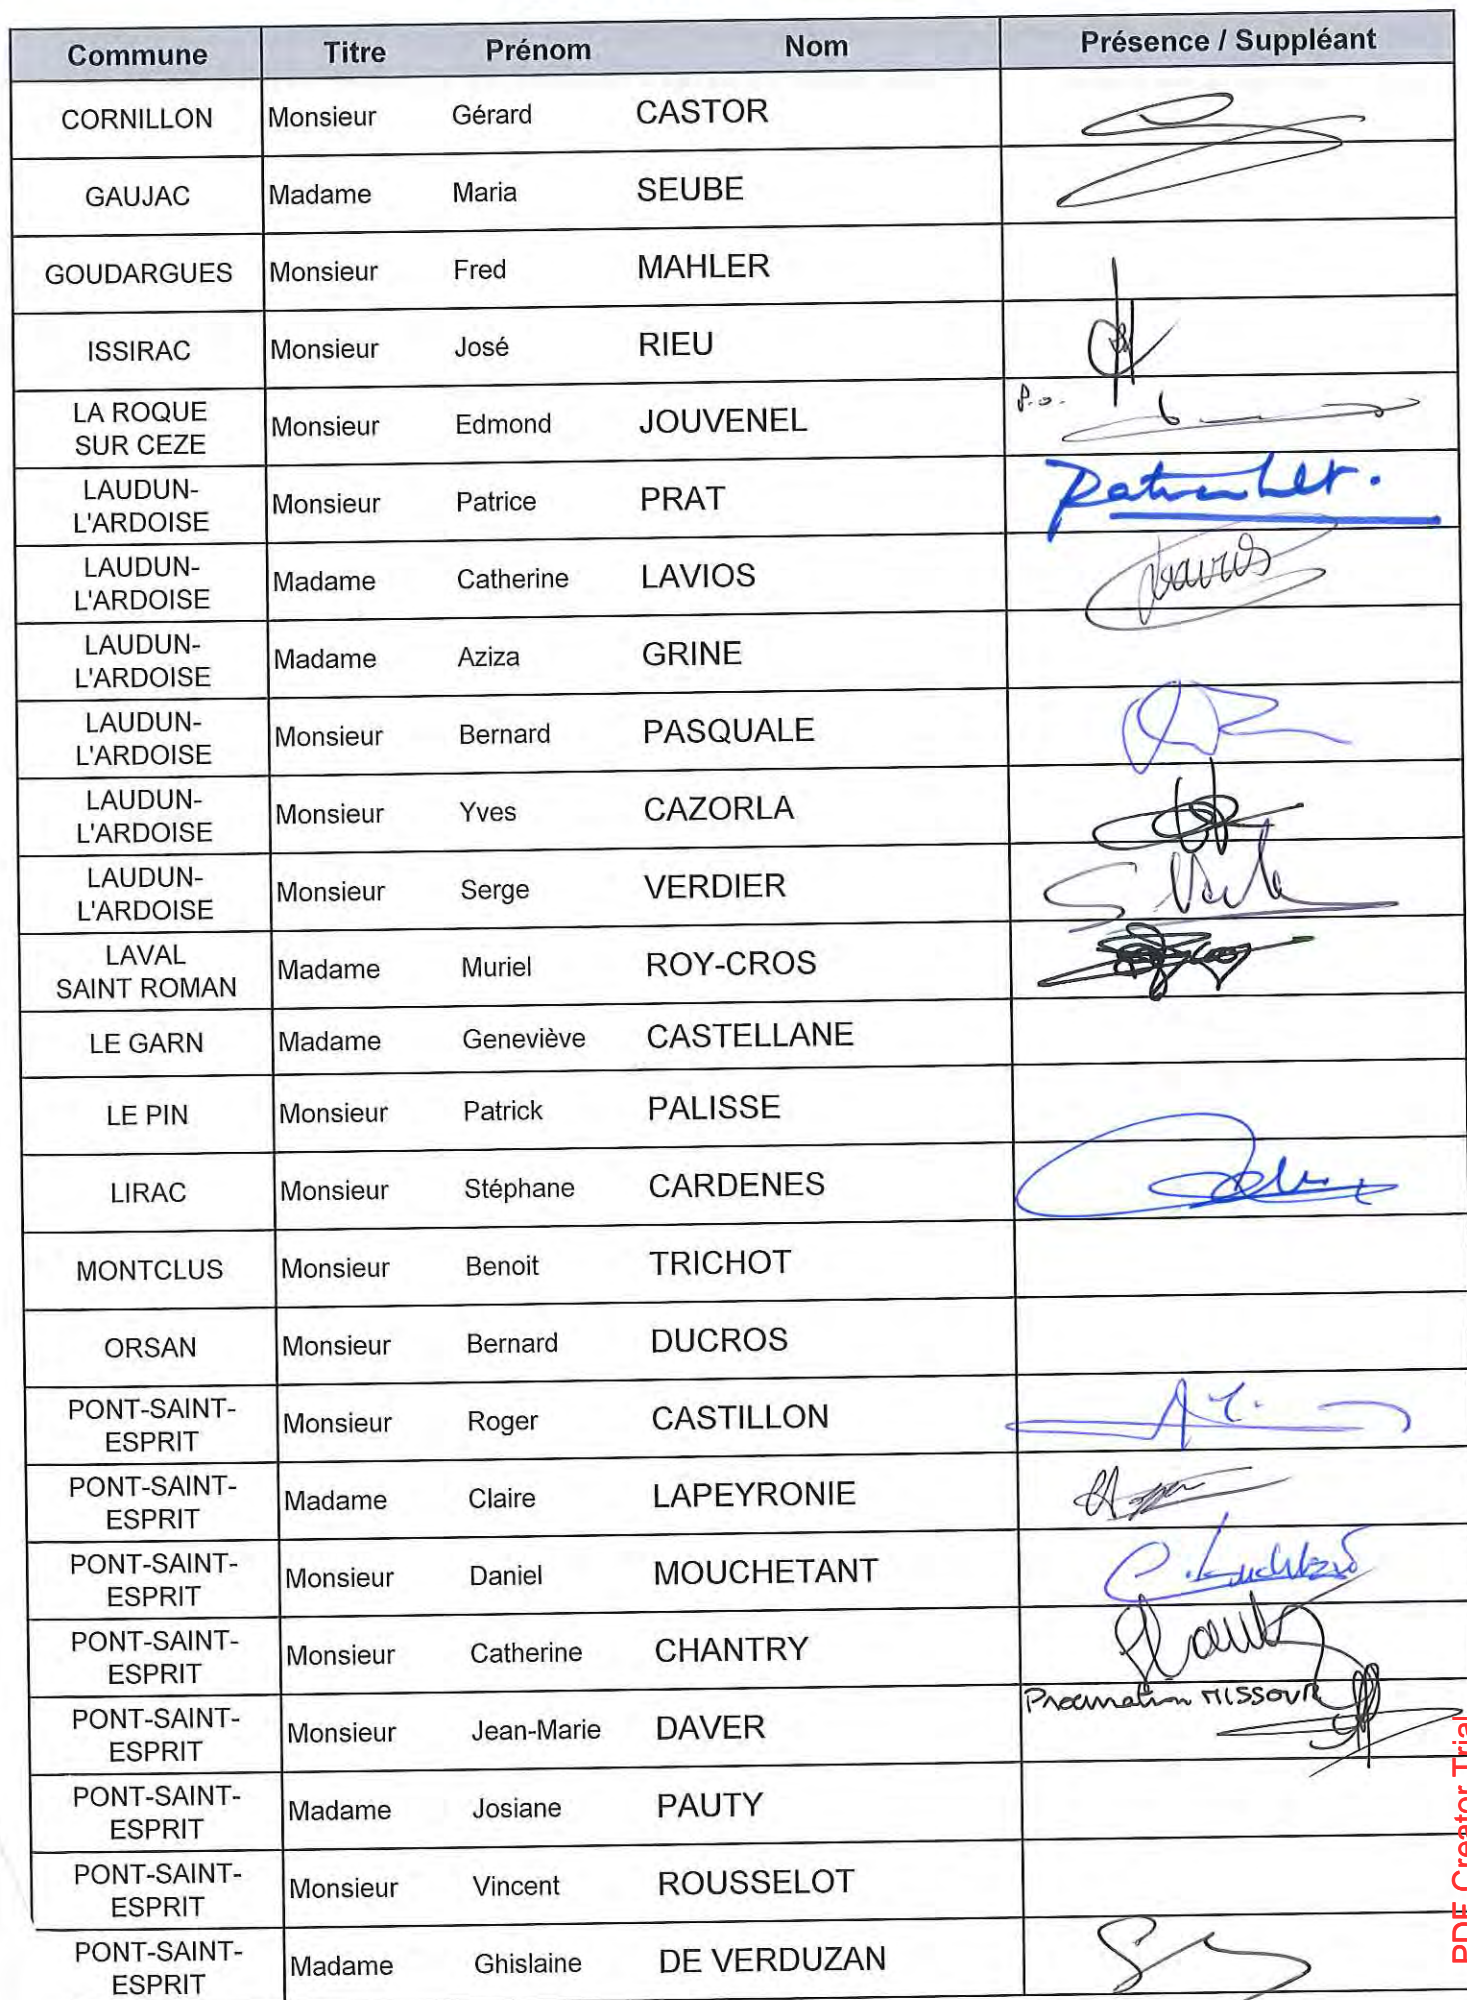 Commune Titre Prénom Nom Présence / Suppléant
CORNILLON Monsieur Gérard CASTOR
GAUJAC Madame Maria SEUBE
GOUDARGUES Monsieur Fred MAHLER
ISSIRAC Monsieur José RIEU
LA ROQUE
SUR CEZE Monsieur Edmond JOUVENEL P.o.
LAUDUN-
L'ARDOISE Monsieur Patrice PRAT
LAUDUN-
L'ARDOISE Madame Catherine LAVIOS
LAUDUN-
L'ARDOISE Madame Aziza GRINE
LAUDUN-
L'ARDOISE Monsieur Bernard PASQUALE
LAUDUN-
L'ARDOISE Monsieur Yves CAZORLA
LAUDUN-
L'ARDOISE Monsieur Serge VERDIER
LAVAL
SAINT ROMAN Madame Muriel ROY-CROS
LE GARN Madame Geneviève CASTELLANE
LE PIN Monsieur Patrick PALISSE
LIRAC Monsieur Stéphane CARDENES
MONTCLUS Monsieur Benoit TRICHOT
ORSAN Monsieur Bernard DUCROS
PONT-SAINT-
ESPRIT Monsieur Roger CASTILLON
PONT-SAINT-
ESPRIT Madame Claire LAPEYRONIE
PONT-SAINT-
ESPRIT Monsieur Daniel MOUCHETANT
PONT-SAINT-
ESPRIT Monsieur Catherine CHANTRY
PONT-SAINT-
ESPRIT Monsieur Jean-Marie DAVER MISSOUR
PONT-SAINT-
ESPRIT Madame Josiane PAUTY
PONT-SAINT-
ESPRIT Monsieur Vincent ROUSSELOT
PONT-SAINT-
ESPRIT Madame Ghislaine DE VERDUZAN
PDF Creator Trial